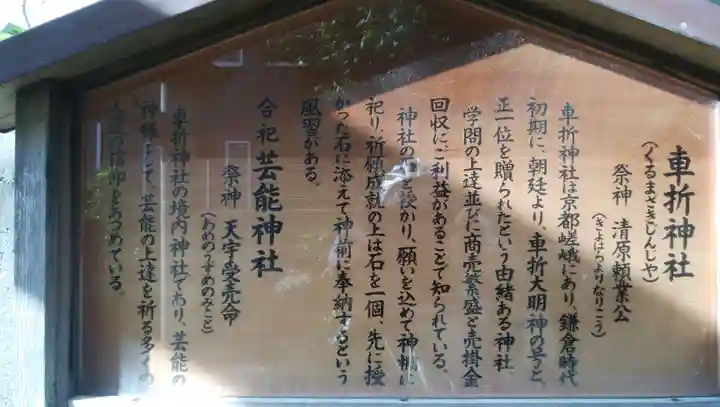 車折神社
(くるまざきじんじや)
祭神 清原頼業公
(きよはらよりなりこう)
車折神社は京都嵯峨にあり、鎌倉時代
初期に、朝廷より、車折大明神の号と、
正一位を贈られたという由緒ある神社。
学問の上達並びに商売繁盛と売掛金
回収にご利益があることで知られている。
神社の石を授かり、願いを込めて神棚に
祀り、祈願成就の上は石を一個、先に授
かった石に添えて神前に奉納するという
風習がある。
合祀 芸能神社
祭神 天宇受売命
(あめのうずめのみこと)
車折神社の境内神社であり、芸能の
神様として、芸能の上達を祈る多くの
信仰をあつめている。